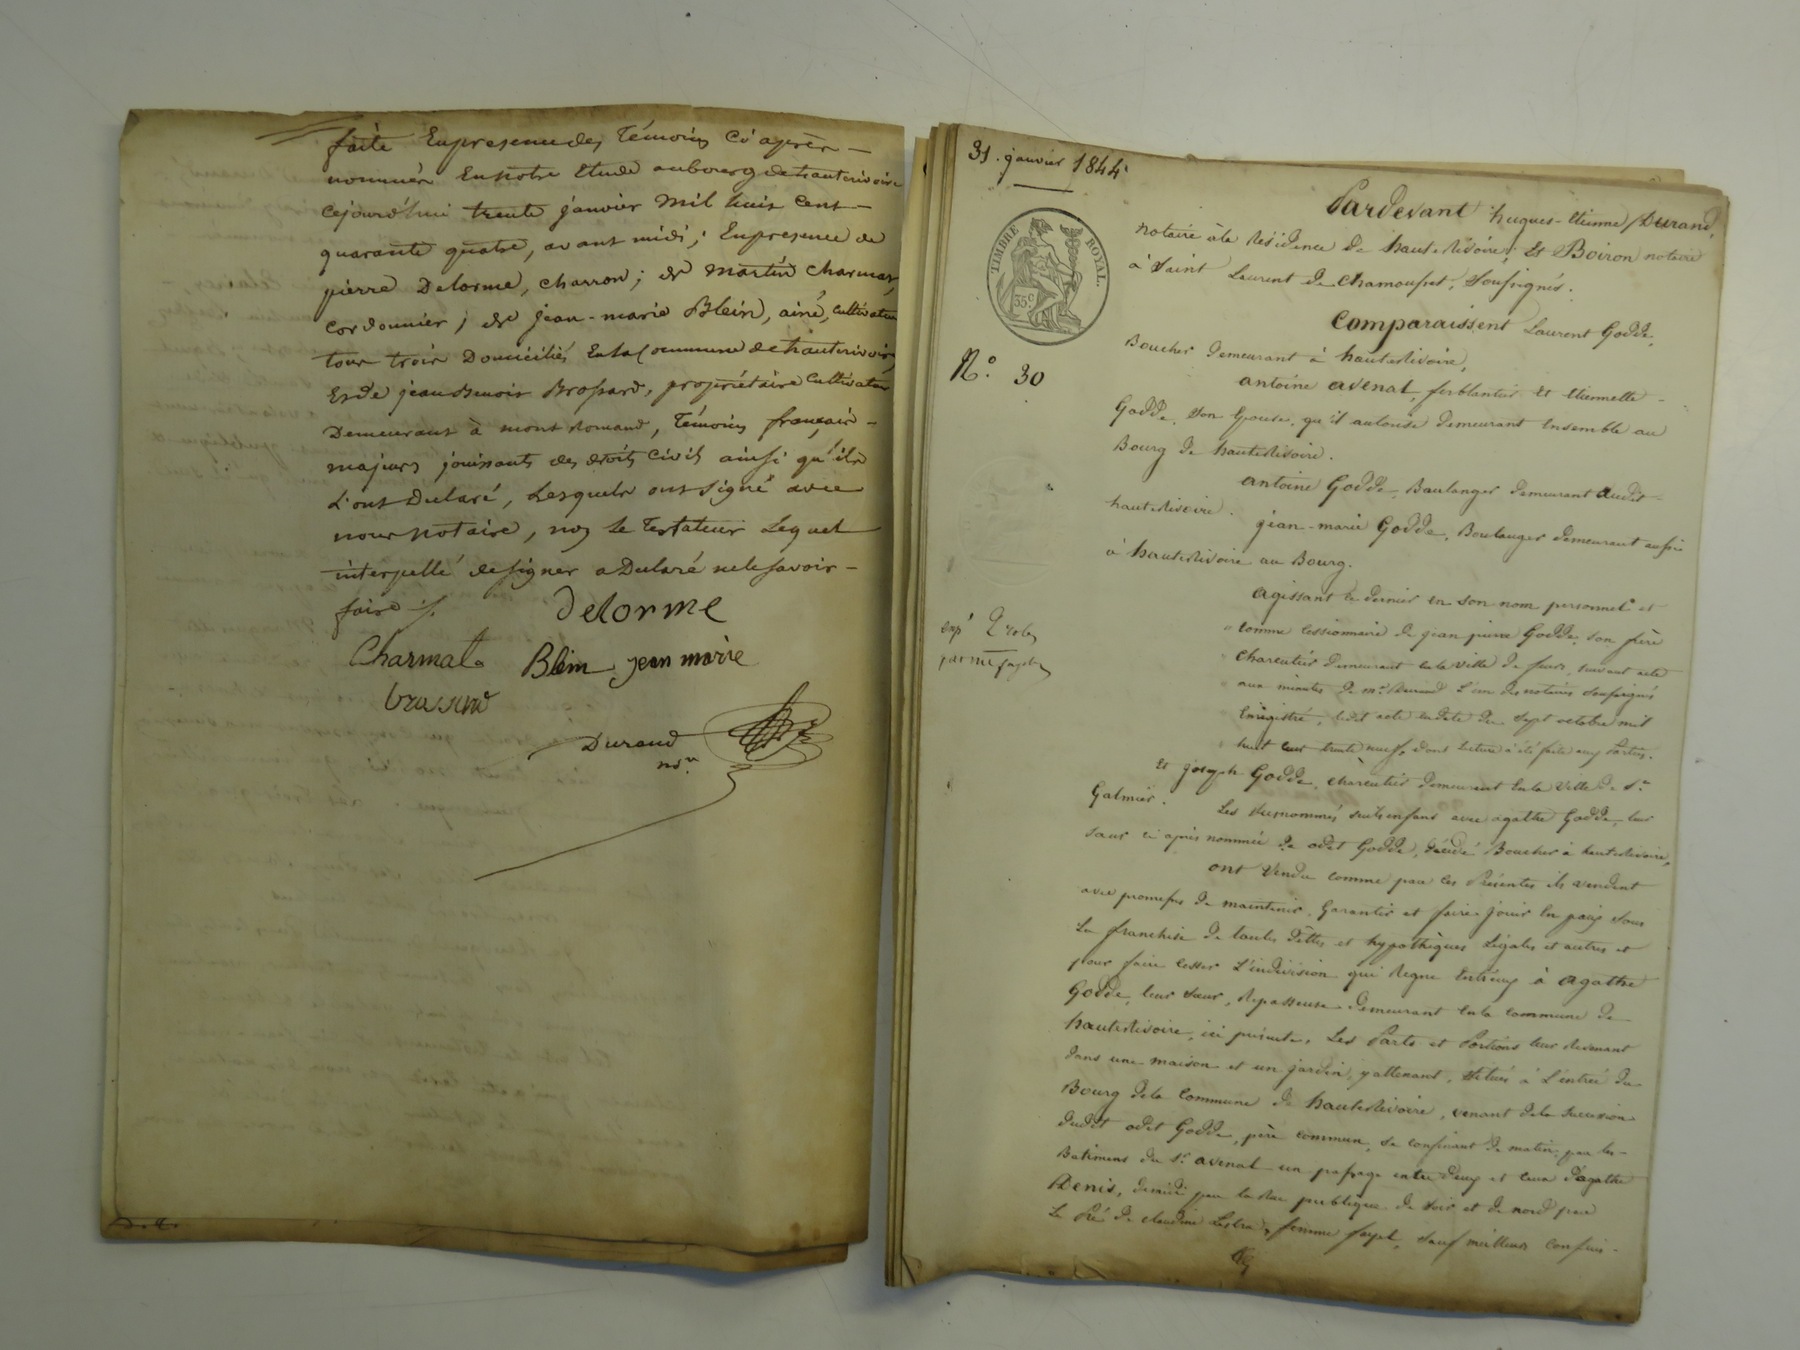 faite En presence des Témoins Ci après —
nommés En notre Etude au bourg de hauterivoire
Cejourd'hui trente janvier Mil huit Cent —
quarante quatre, avant midi; En presence de
pierre Delorme, charron; et martin Charmat,
Cordonnier; et jean-marie Blein, ainé, Cultivateur
tous trois Domiciliés En la Commune de hauterivoire,
Et de jean Benoit Brossard, propriétaire Cultivateur
Demeurant à mont Romand, Témoins français -
majeurs jouissants des droits Civils ainsi qu'ils
L'ont Declaré, Lesquels ont signé avec
nous notaire, non le Testateur Lequel
interpellé de signer a Declaré ne le savoir —
faire ./.
Delorme
Charmat Blein jean marie
brossard
Durand
nore
31. janvier 1844.
TIMBRE ROYAL.
35c
N.o 30
Pardevant hugues-Etienne Durand,
notaire à la Résidence de haute Rivoire; Et Boiron notaire
à Saint Laurent de Chamousset, Soussignés.
Comparaissent Laurent Godde,
Boucher demeurant à haute Rivoire,
antoine avenat, ferblantier Et Etiennette -
Godde, Son Epouse, qu'il autorise demeurant Ensemble au
Bourg de haute Rivoire.
antoine Godde, Boulanger demeurant audit -
haute Rivoire.
jean-marie Godde, Boulanger demeurant aussi
à haute Rivoire au Bourg.
agissant ce dernier en son nom personnel et
comme Cessionnaire de jean pierre Godde, son frère
Charcutier demeurant en la ville de feurs, suivant acte
aux minutes de Me. Durand L'un des notaires Soussignés
Enregistré, ledit acte en date du Sept octobre mil
huit cent trente neuf, dont lecture a été faite aux Parties.
Et joseph Godde, charcutier demeurant en la Ville de St.
Galmier.
Les Surnommés seuls enfans avec agathe Godde, leur
sœur ci après nommée de odet Godde, décédé Boucher à haute Rivoire,
ont Vendu comme par ces Présentes ils vendent
avec promesse de maintenir, Garantir et faire jouir En paix Sous
La franchise de toutes dettes et hypothèques Légales et autres et
pour faire cesser L'indivision qui Regne Entr'eux à agathe
Godde, leur Sœur, Repasseuse demeurant en la commune de
haute Rivoire, ici présente, Les Parts et Portions leur Revenant
dans une maison et un jardin, y attenant, situés à L'entrée du
Bourg de la Commune de haute Rivoire, venant de la Succession
dudit odet Godde, père commun, se confinant de matin, par les -
Batimens du Sr. avenat un passage entre deux et ceux d'agathe
Denis, de midi par la Rue publique de soir et de nord par
Le Pré de claudine femme fayet, sauf meilleurs confins -